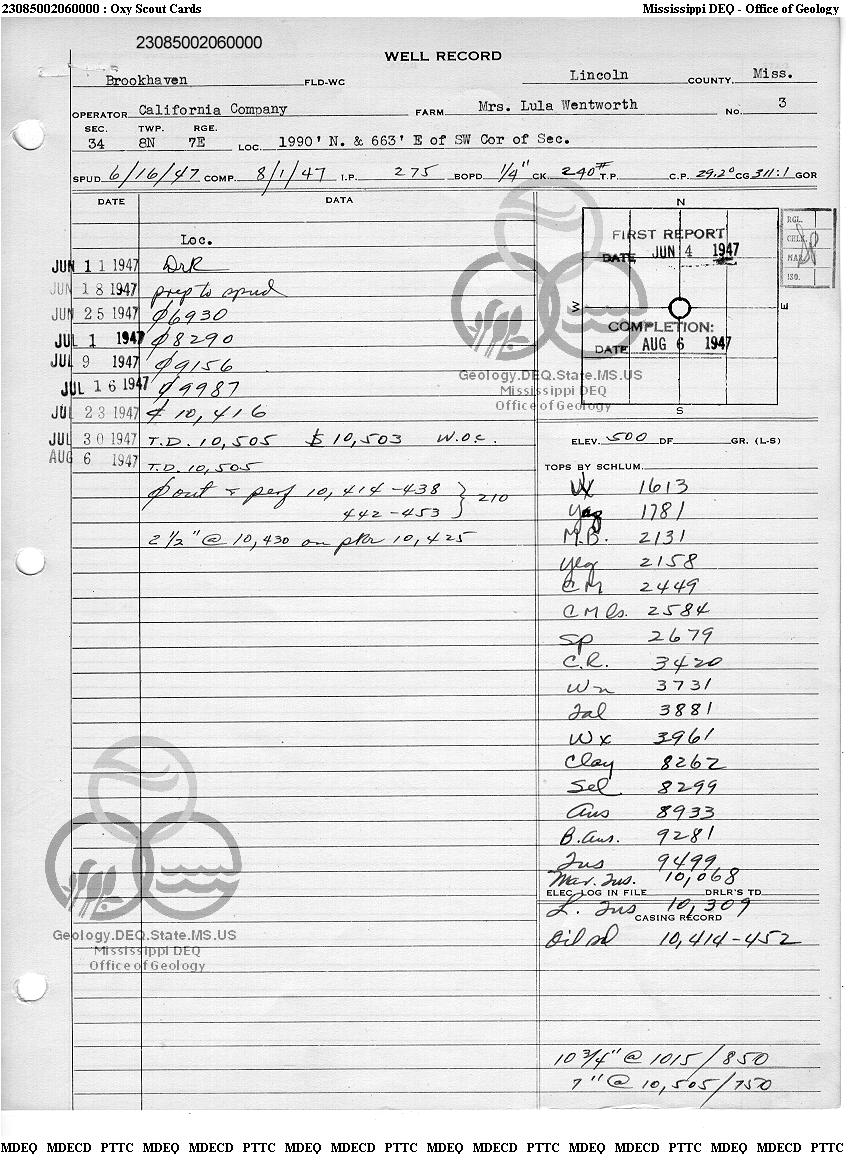 23085002060000 : Oxy Scout Cards Mississippi DEQ - Office of Geology
23085002060000
WELL RECORD
Brookhaven FLD-WC Lincoln COUNTY. Miss.
OPERATOR California Company FARM Mrs. Lula Wentworth NO. 3
SEC. TWP. RGE.
34 8N 7E LOC. 1990' N. & 663' E of SW Cor of Sec.
SPUD 6/16/47 COMP. 8/1/47 I.P. 275 BOPD 1/4" CK. 240# T.P. C.P. 29.2° CG 311:1 GOR
DATE DATA
Loc.
JUN 11 1947 DrR
JUN 18 1947 prep to spud
JUN 25 1947 ₵6930
JUL 1 1947 ₵8290
JUL 9 1947 ₵9156
JUL 16 1947 ₵9987
JUL 23 1947 ₵ 10,416
JUL 30 1947 T.D. 10,505 $ 10,503 W.O.C.
AUG 6 1947 T.D. 10,505
out & perf 10,414-438 } 210
442-453
2 1/2" @ 10,430 on pkr 10,425
N
W
E
S
FIRST REPORT
DATE JUN 4 1947
COMPLETION:
DATE AUG 6 1947
RGL.
CHLK.
MAP
ISO.
Geology.DEQ.State.MS.US
Mississippi DEQ
Office of Geology
ELEV. 500 DF GR. (L-S)
TOPS BY SCHLUM.
Vx 1613
Yaz 1781
M.B. 2131
Yeg 2158
CM 2449
CM ls. 2584
Sp 2679
C.R. 3420
Wn 3731
Tal 3881
Wx 3961
Clay 8262
Sel 8299
Aus 8933
B. Aus. 9281
Tus 9499
Mar. Tus. 10,068
ELEC. LOG IN FILE DRLR'S TD
L. Tus 10,309
CASING RECORD
Oil sd 10,414-452
10 3/4" @ 1015/850
7" @ 10,505/750
Geology.DEQ.State.MS.US
Mississippi DEQ
Office of Geology
MDEQ MDECD PTTC MDEQ MDECD PTTC MDEQ MDECD PTTC MDEQ MDECD PTTC MDEQ MDECD PTTC MDEQ MDECD PTTC